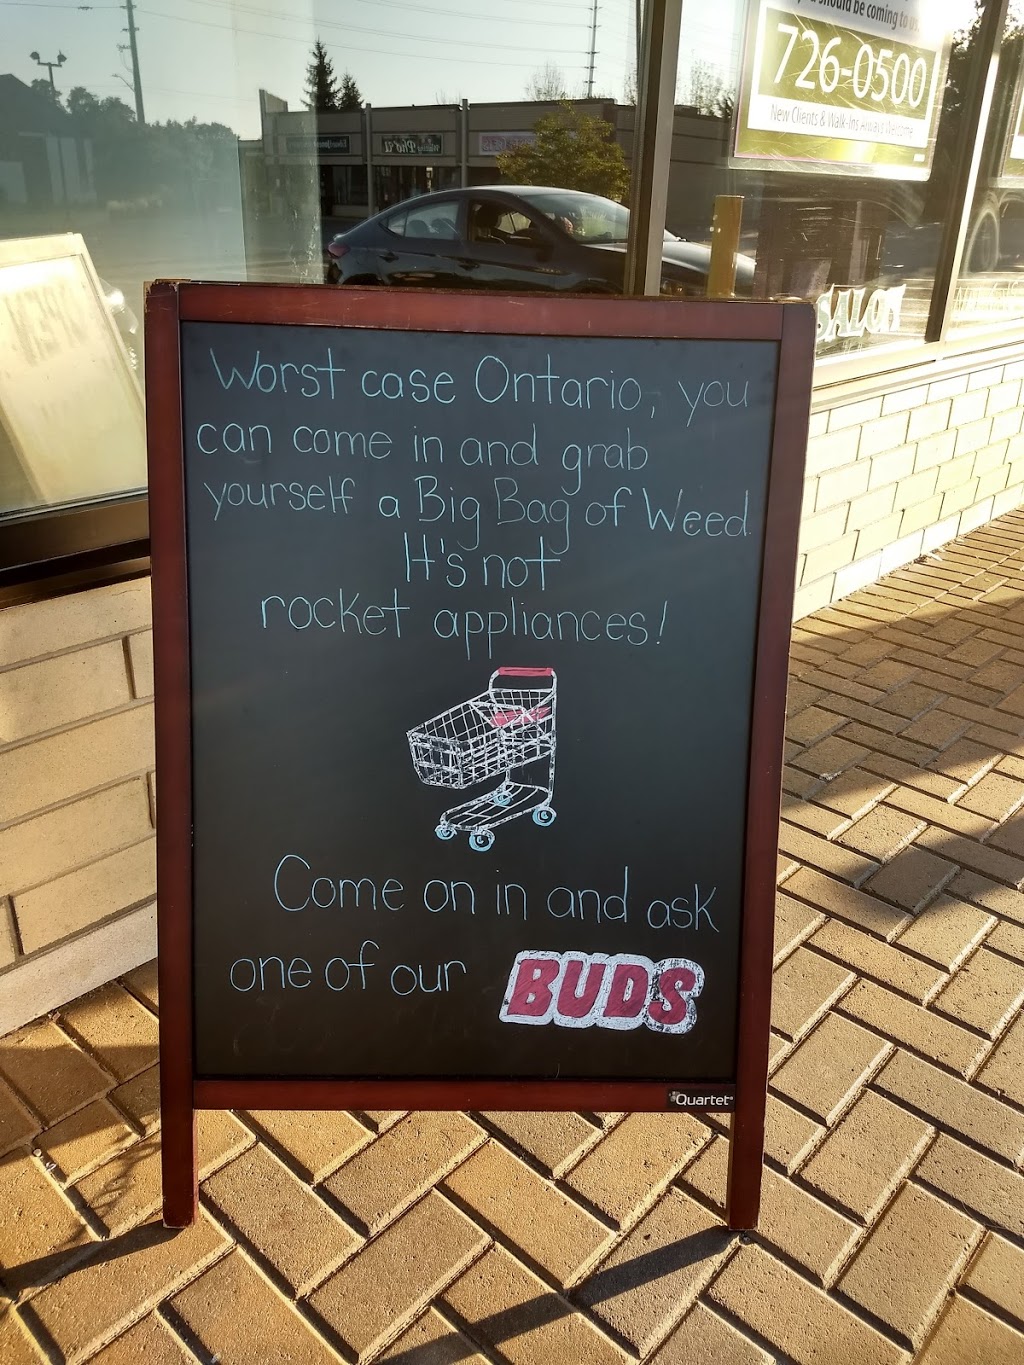 should be coming to
726-0500
New Clients & Walk-Ins Always Welcome
SALON
Worst case Ontario, you
can come in and grab
yourself a Big Bag of Weed.
It's not
rocket appliances!
Come on in and ask
one of our BUDS
Quartet